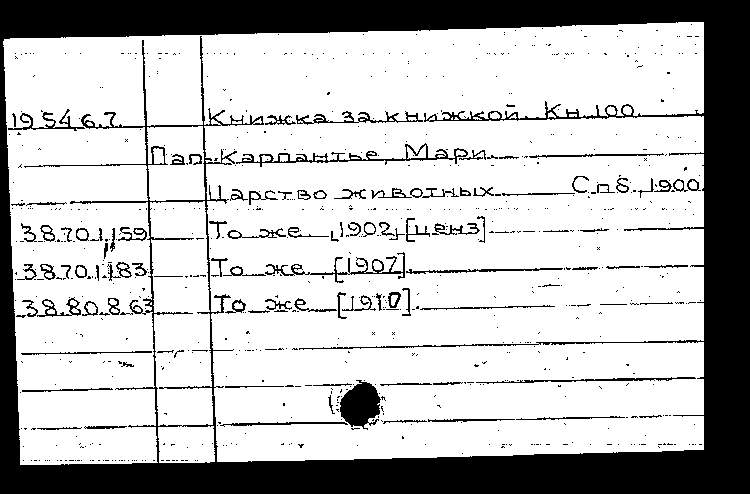 19.54.6.7. Книжка за книжкой. Кн. 100.
Пап-Карпантье, Мари.
Царство животных. Спб., 1900.
38.70.1.159 То же. [1902] [ценз].
38.70.1.183 То же. [1907].
38.80.8.63 То же. [1910].